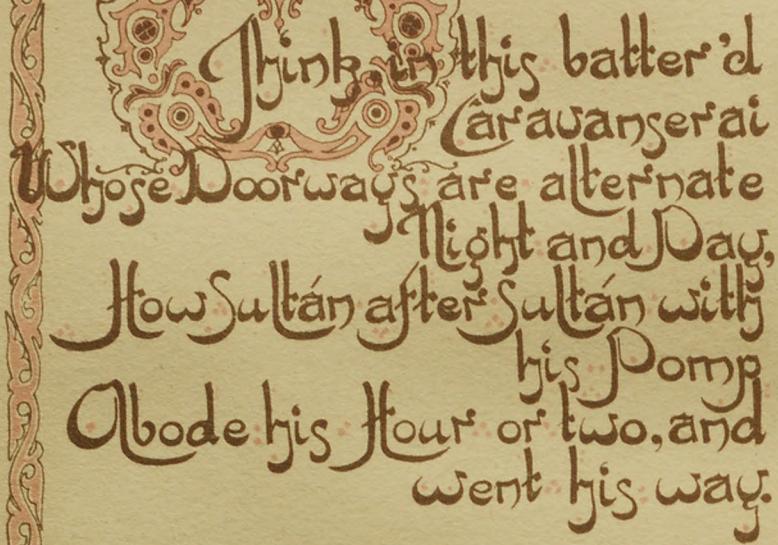 Think, in this batter'd
Caravanserai
Whose Doorways are alternate
Night and Day,
How Sultán after Sultán with
his Pomp
Abode his Hour or two, and
went his way.